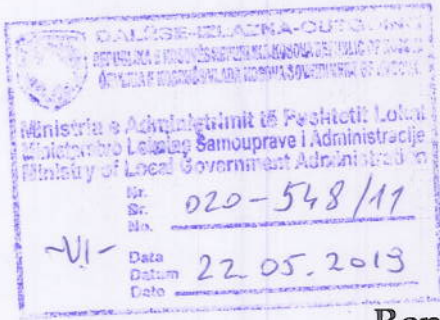 DALËSE-IZLAZNA-OUTGOING
REPUBLIKA E KOSOVËS-REPUBLIKA KOSOVA-REPUBLIC OF KOSOVO
QEVERIA E KOSOVËS-VLADA KOSOVA-GOVERNMENT OF KOSOVO
Ministria e Administrimit të Pushtetit Lokal
Ministarstvo Lokalne Samouprave i Administracije
Ministry of Local Government Administration
Nr.
Br.
No.
020-548/11
-VI-
Data
Datum
Date
22.05.2019